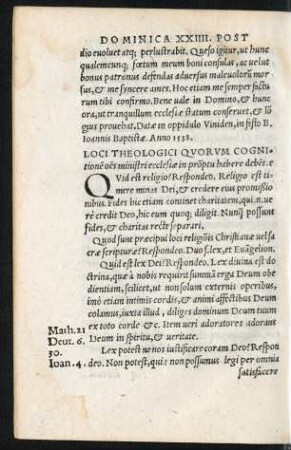 DOMINICA XXIIII. POST
dio euoluet atq; perlustrabit. Quęso igitur, ut hunc
qualemcunq; fœtum meum boni consulas, ac uelut
bonus patronus defendas aduersus maleuolorũ mor
sus, & me syncere ames. Hoc etiam me semper factu
rum tibi confirmo. Bene uale in Domino, & hunc
ora, ut tranquillum ecclesiæ statum conseruet, & lõ
gius prouehat. Datæ in oppidulo Viniden, in festo B.
Ioannis Baptistæ. Anno 1538.
LOCI THEOLOGICI QVORVM COGNI
tionē oēs ministri ecclesiæ in prōptu habere debēt. e
QVid est religio? Respondeo. Religio est ti
mere minas Dei, & credere eius promissio
nibus. Fides hic etiam continet charitatem, qui.n.ue
rè credit Deo, hic eum quoq; diligit. Nunq̃ possunt
fides, & charitas recte separari.
Quod sunt præcipui loci religiōis Christianæ uel sa
cræ scripturæ? Respondeo. Duo s. lex, et Euāgelion.
Quid est lex Dei? Respondeo. Lex diuina est do
ctrina, quæ à nobis requirit summā erga Deum obe
dientiam, scilicet, ut non solum externis operibus,
imò etiam intimis cordis, & animi affectibus Deum
colamus, iuxta illud, diliges dominum Deum tuum
Math. 22 ex toto corde &c. Item ueri adoratores adorant
Deut. 6. Deum in spiritu, & ueritate.
30. Lex potest ne nos iustificare coram Deo? Respon
Ioan. 4. deo. Non potest, quia non possumus legi per omnia
satisfacere